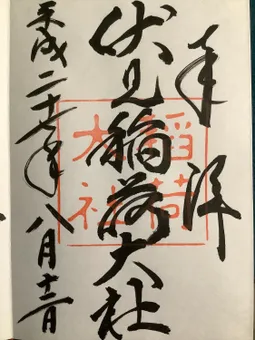 奉拝
伏見稲荷大社
稲荷
大社
平成二十七年八月